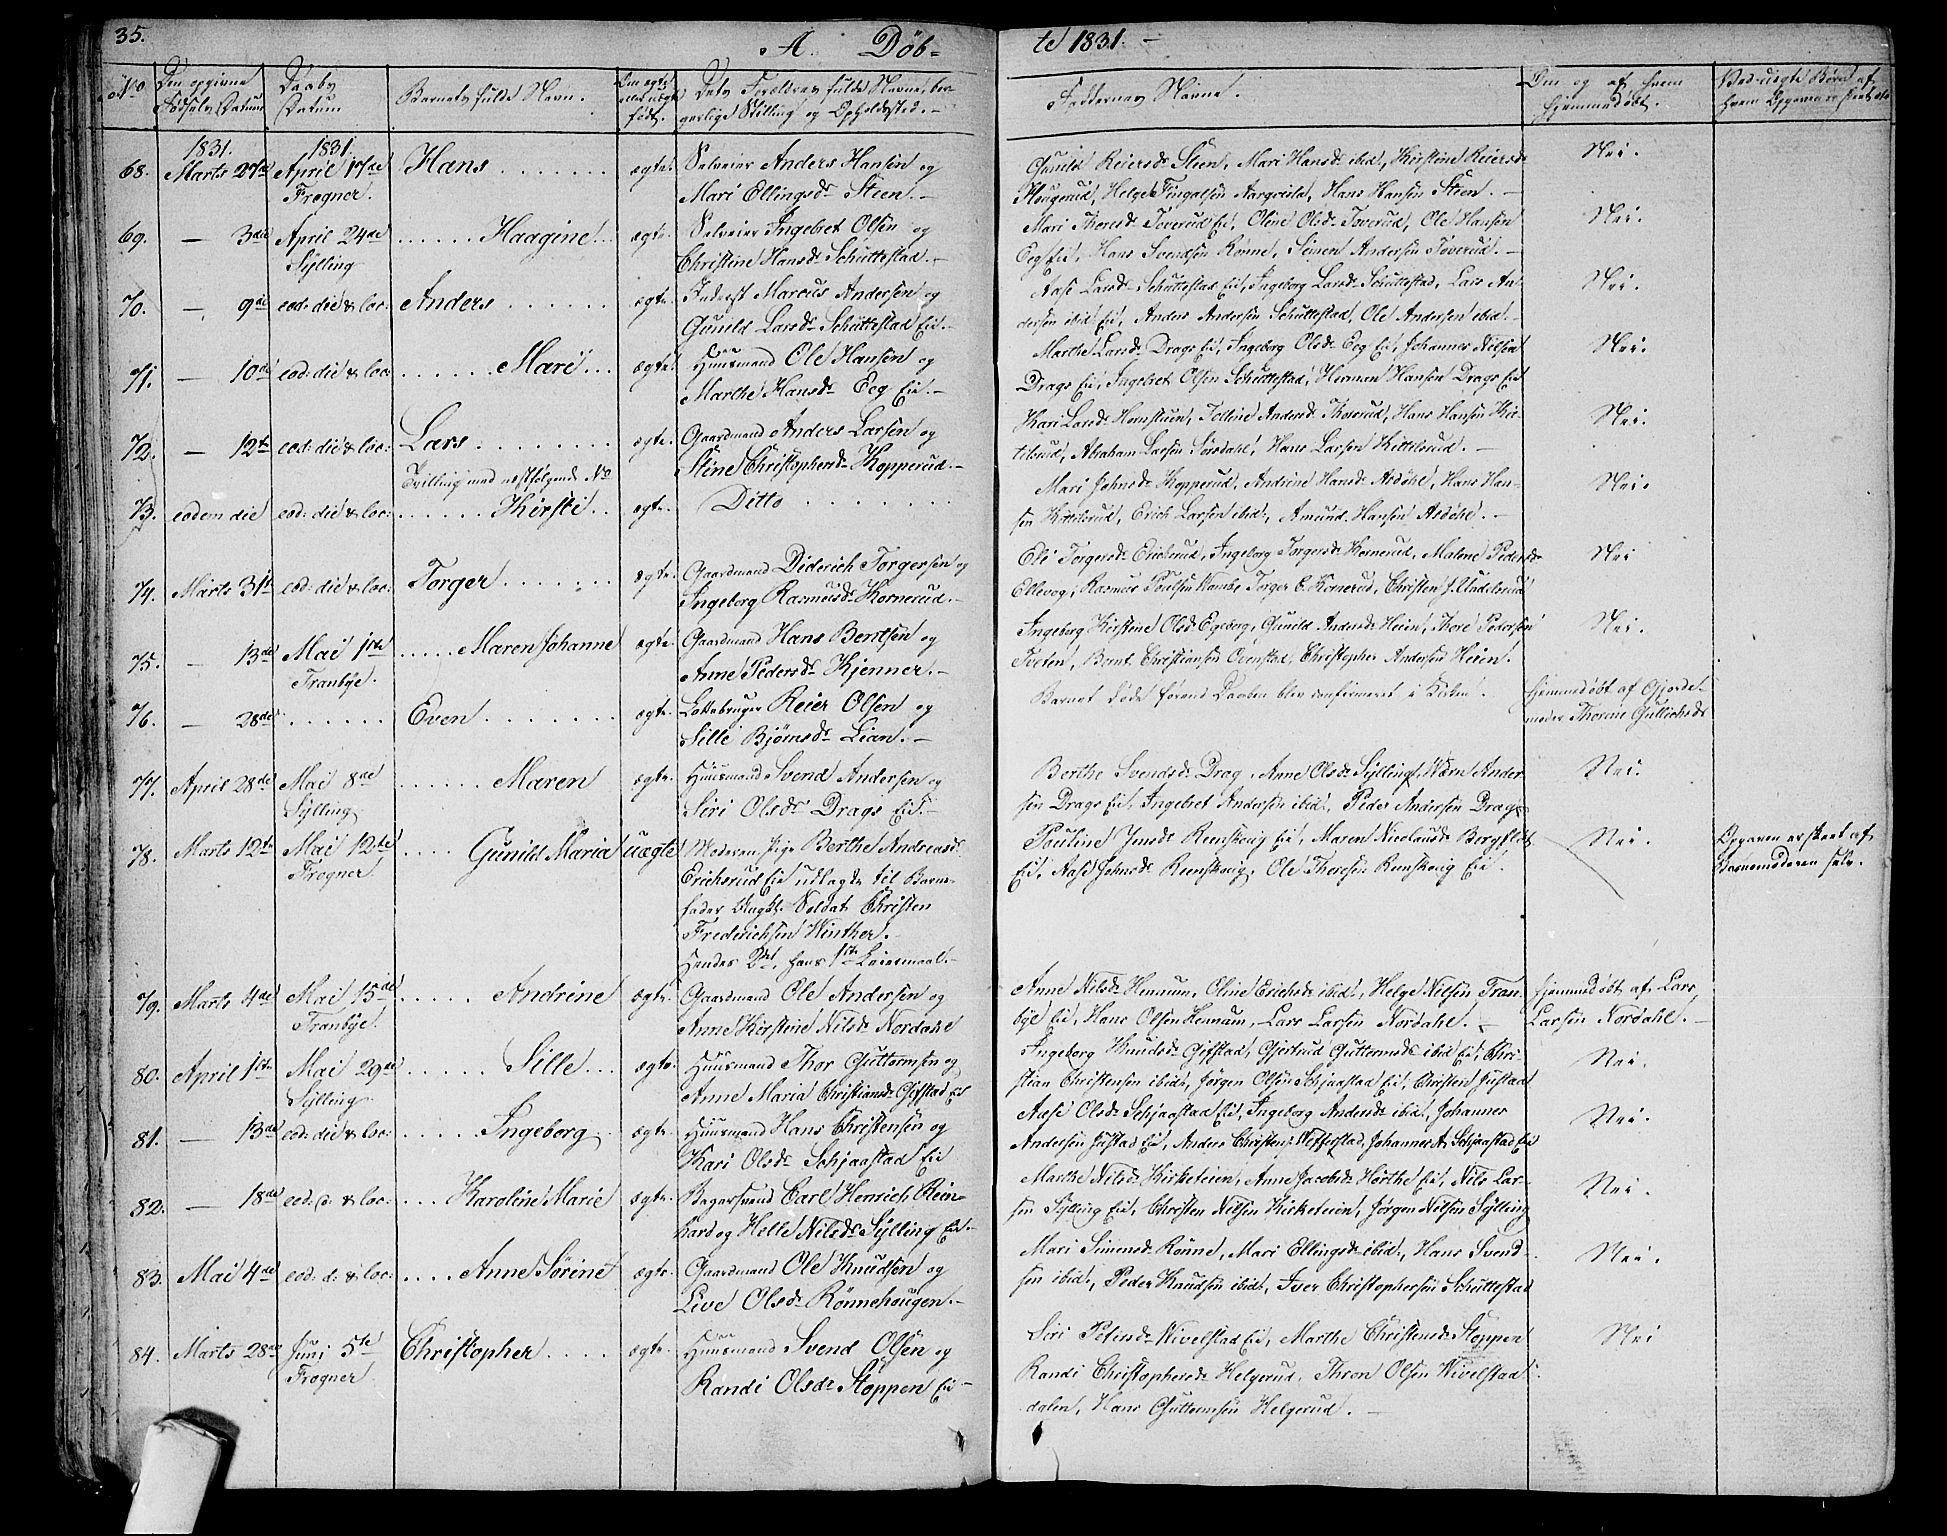 35.
A. Döb-
te 1831.
No
Den opgivne Fødsels Datum
Daabs Datum
Barnets fulde Navn.
Om ægte eller uægte født.
Dets Forældres fulde Navne, borgerlige Stilling og Opholdssted.
Faddernes Navne.
Om og af hvem hjemmedøbt.
Ved uægte Børn af hvem Opgaven er skeet
1831. 1831.
68. Marts 27de April 17de Hans ægte. Selveier Anders Hansen og
Frogner. Mari Ellingsdr Steen.
Gunild Reiersdr Steen, Mari Hansdr ibid, Kirstine Reiersdr
Haugerud, Helge Hansen Steen. Nei.
69. — 3die April 24de Haagine ægte. Selveier Ingebret Olsen og
Sylling Christine Hansdr Schüttestad.
Mari Thoresdr Toverud Eie, Oline Olsdr Toverud, Ole Hansen
Eeg Eie, Hans Svendsen Rønne, Simen Andersen Toverud. Nei.
70. — 9de eod: die & loc: Anders ægte. Inderst Marcus Andersen og
Gunild Larsdr Schüttestad Eie.
Aase Larsdr Schüttestad Eie, Ingeborg Larsdr Schüttestad, Lars An-
dersen ibid Eie, Anders Andersen Schüttestad, Ole Andersen ibid. Nei.
71. — 10de eod: die & loc: Mari ægte. Huusmand Ole Hansen og
Marthe Hansdr Eeg Eie.
Marthe Larsdr Drags Eie, Ingeborg Olsdr Eeg Eie, Johannes Nilsen
Drags Eie, Ingebret Olsen Schüttestad, Herman Hansen Drags Eie Nei.
72. — 12te eod: die & loc: Lars ægte. Gaardmand Anders Larsen og
Tvilling med næstfølgende No Stine Christophersdr Kopperud.
Kari Larsdr Hamstuen, Hans Hansen Kit-
tilsrud, Abraham Larsen Sørsdahl, Hans Larsen Kittilsrud. Nei.
73. eodem die eod: die & loc: Kirsti ægte. Ditto
Mari Johnsdr Kopperud, Andrine Hansdr Asdøhl, Hans Han-
sen Kittilsrud, Erich Larsen ibid, Amund Hansen Asdøhl. Nei.
74. Marts 31te eod: die & loc: Torger ægte. Gaardmand Diderich Torgersen og
Ingeborg Rasmusdr Hornerud.
Eli Torgersdr Ericksrud, Ingeborg Torgersdr Hornerud, Malene Pedersdr
Ellevog, Rasmus Poulsen Torger E. Hornerud, Christen Nei
75. — 13de Mai 1ste Maren Johanne ægte. Gaardmand Hans Berntsen og
Tranbye. Anne Pedersdr Kjenner.
Ingeborg Kirstine Olsdr Egeberg, Gunild Andersdr Heien, Thore Pedersen
Tveten, Bernt Christiansen Ovenstad, Christopher Andersen Heien. Nei.
76. — 28de Even ægte. Lottebruger Reier Olsen og
Sille Bjørnsdr Lian.
Barnet døde førend Daaben blev confirmeret i Kirken. Hjemmedøbt af Gjorde-
moder Thorine Gullichsdr
77. April 28de Mai 8de Maren ægte. Huusmand Svend Andersen og
Sylling Siri Olsdr Drags Eie.
Berthe Svendsdr Drag, Anne Olsdr Sylling, Ander-
sen Drags Eie, Ingebret Andersen ibid, Peder Andersen Drags Nei.
78. Marts 12te Mai 12te Gunild Maria uægte Moderen Pige Berthe Andreasdr
Frogner Ericksrud Eie udlagde til Barne-
fader Soldat Christen
Frederichsen Winther.
Hendes 2det, hans 1ste Leiermaal.
Pouline Jensdr Renskoug Eie, Maren Nicolaisdr Bergflødt
Eie, Aase Johnsdr Renskoug, Ole Thoresen Renskoug Eie. Nei. Opgaven er skeet af
Barnemoderen selv.
79. Marts 4de Mai 15de Andrine ægte. Gaardmand Ole Andersen og
Tranbye. Anne Kirstine Nilsdr Nordahl
Anne Nilsdr Hennum, Oline Erichsdr ibid, Helge Nilsen Tran-
bye Eie, Hans Olsen Hennum, Lars Larsen Nordahl. Hjemmedøbt af Lars
Larsen Nordahl.
80. April 1ste Mai 29de Sille ægte. Huusmand Thor Guttormsen og
Sylling. Anne Maria Christiansdr Gifstad Eie
Ingeborg Knudsdr Gifstad, Gjertrud Guttormsdr ibid Eie, Chri-
stian Christensen ibid, Jørgen Olsen Schjaastad Eie, Christen Justad Nei.
81. — 13de eod: die & loc: Ingeborg ægte. Huusmand Hans Christensen og
Kari Olsdr Schjaastad Eie
Aase Olsdr Schjaastad Eie, Ingeborg Andersdr ibid, Johannes
Andersen Justad Eie, Anders Christens. Wefferstad, Johannes A. Schjaastad Eie Nei.
82. — 18de eod: d: & loc: Karoline Marie ægte. Bagersvend Carl Henrich Rein-
hard og Helle Nilsdr Sylling Eie.
Marthe Nilsdr Kirketeien, Anne Jacobsdr Hørthe Eie, Nils Lar-
sen Sylling Eie, Christen Nilsen Kirketeien, Jørgen Nilsen Sylling Nei.
83. Mai 4de eod: d: & loc: Anne Sørine ægte. Gaardmand Ole Knudsen og
Live Olsdr Rønnehougen.
Mari Simensdr Rønne, Mari Ellingsdr ibid, Hans Svend-
sen ibid, Peder Knudsen ibid, Iver Christophersen Schüttestad Nei.
84. Marts 28de Juni 5te Christopher ægte. Huusmand Svend Olsen og
Frogner. Randi Olsdr Stoppen Eie
Siri Pedersdr Wivelstad Eie, Marthe Christensdr Stoppen
Randi Christophersdr Helgerud, Thron Olsen Wivelstad-
dalen, Hans Guttormsen Helgerud. Nei